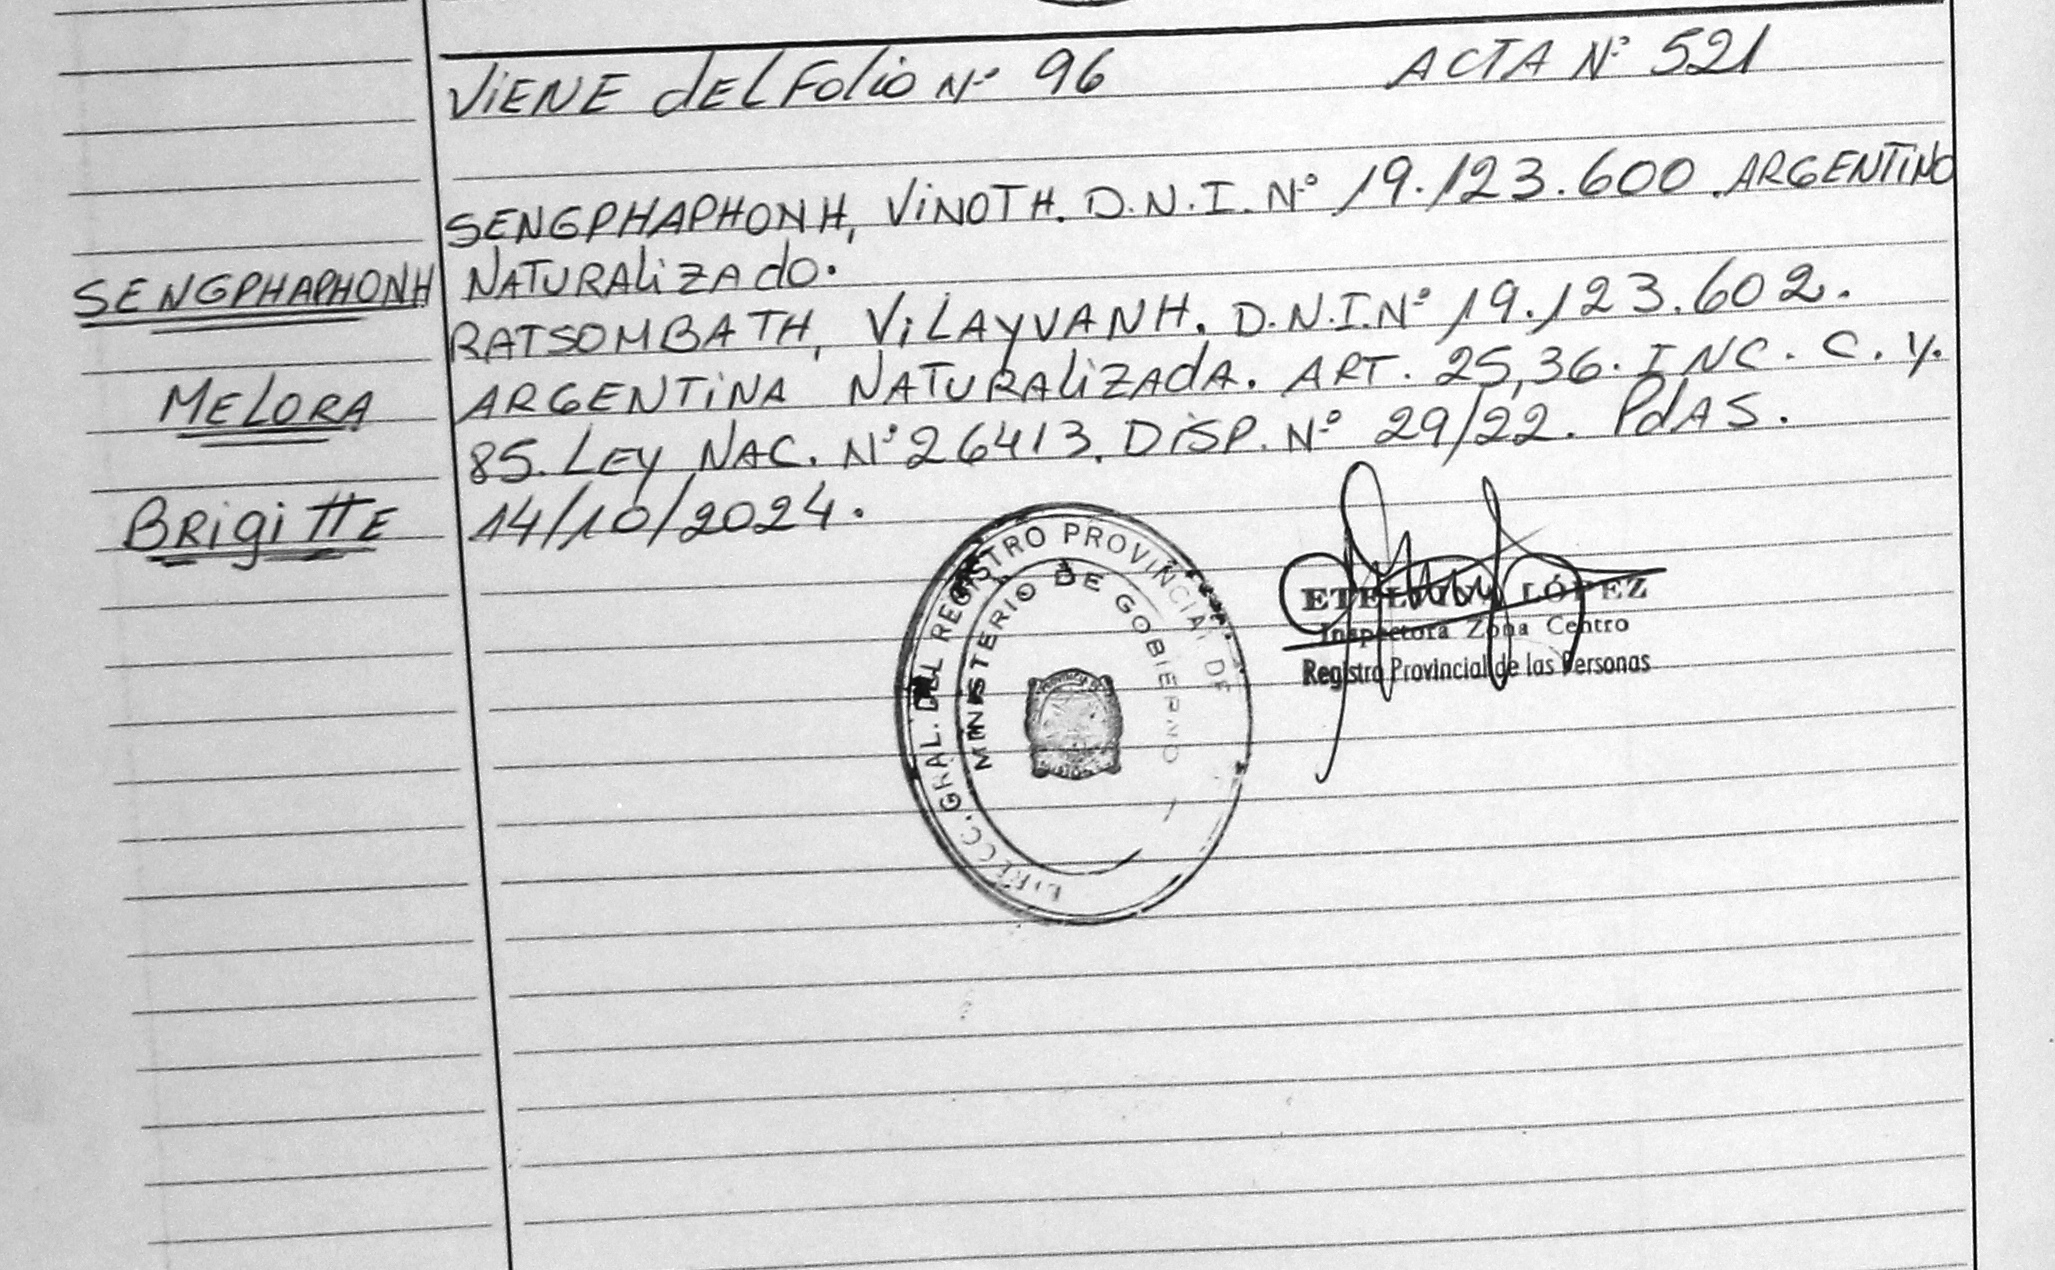 VIENE dEL Folio Nº 96 ACTA Nº 521
SENGPHAPHONH, VINOTH. D.N.I. Nº 19.123.600. ARGENTINO
SENGPHAPHONH
NATURALIZADO.
RATSOMBATH, VILAYVANH. D.N.I. Nº 19.123.602.
MELORA
ARGENTINA NATURALIZADA. ART. 25,36. INC. C. Y.
85. LEY NAC. Nº 26413. DISP. Nº 29/22. PdAS.
BRIGITTE
14/10/2024.
DIRECC. GRAL. DEL REGISTRO PROVINCIAL DE
MINISTERIO DE GOBIERNO
LÓPEZ
Inspectora Zona Centro
Registro Provincial de las Personas